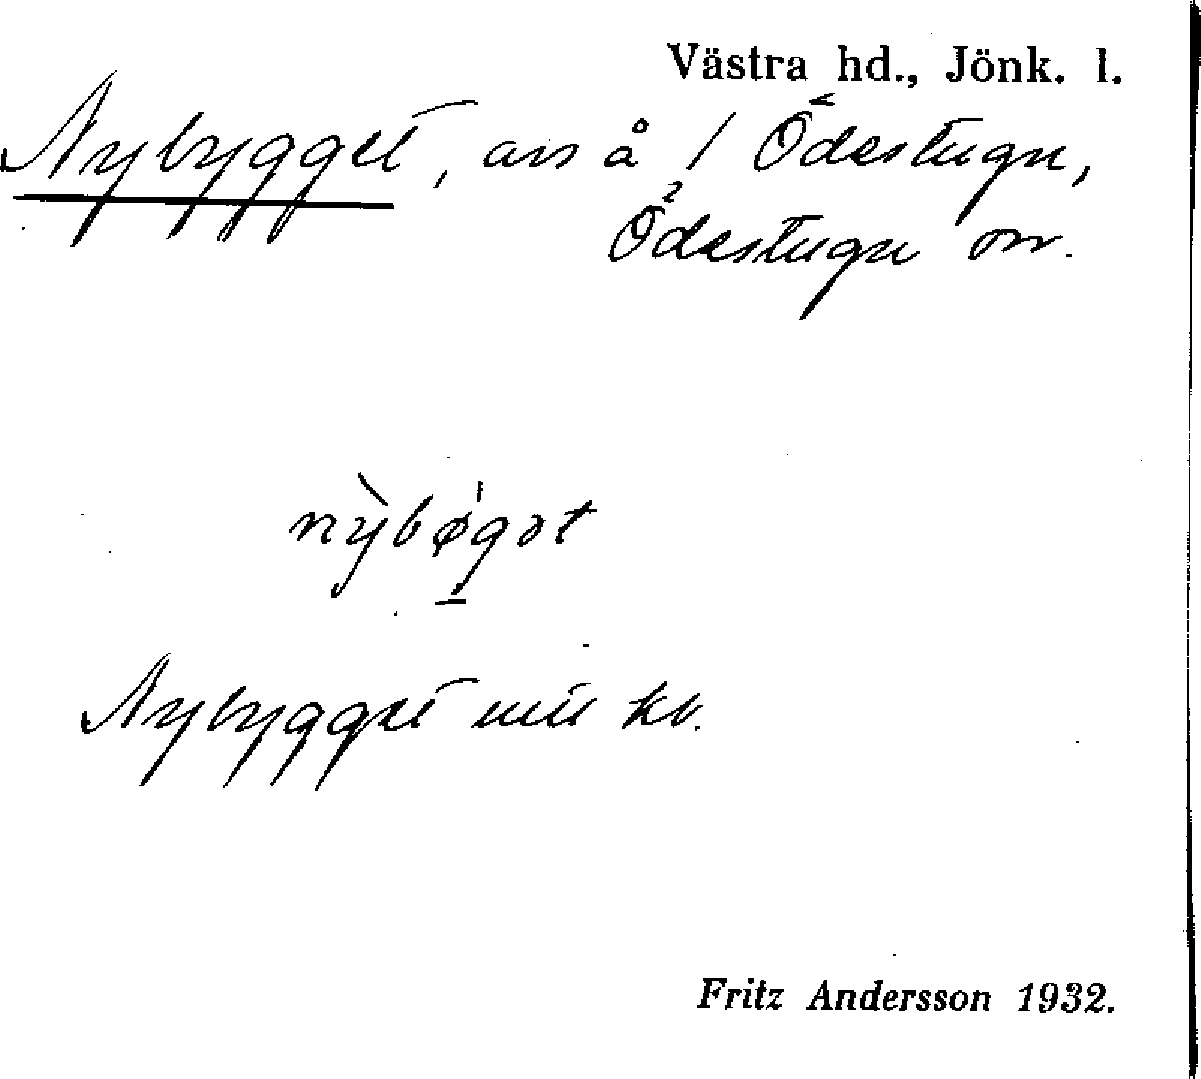 Västra hd., Jönk. l.
Nybygget, avs å / Ödestugu,
Ödestugu sn.
nỳbø̀gət
Nybygget utt kb.
Fritz Andersson 1932.